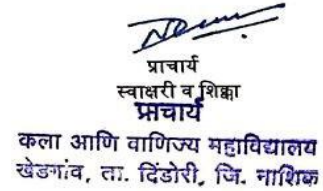 प्राचार्य
स्वाक्षरी व शिक्का
प्राचार्य
कला आणि वाणिज्य महाविद्यालय
खेडगांव, ता. दिंडोरी, जि. नाशिक